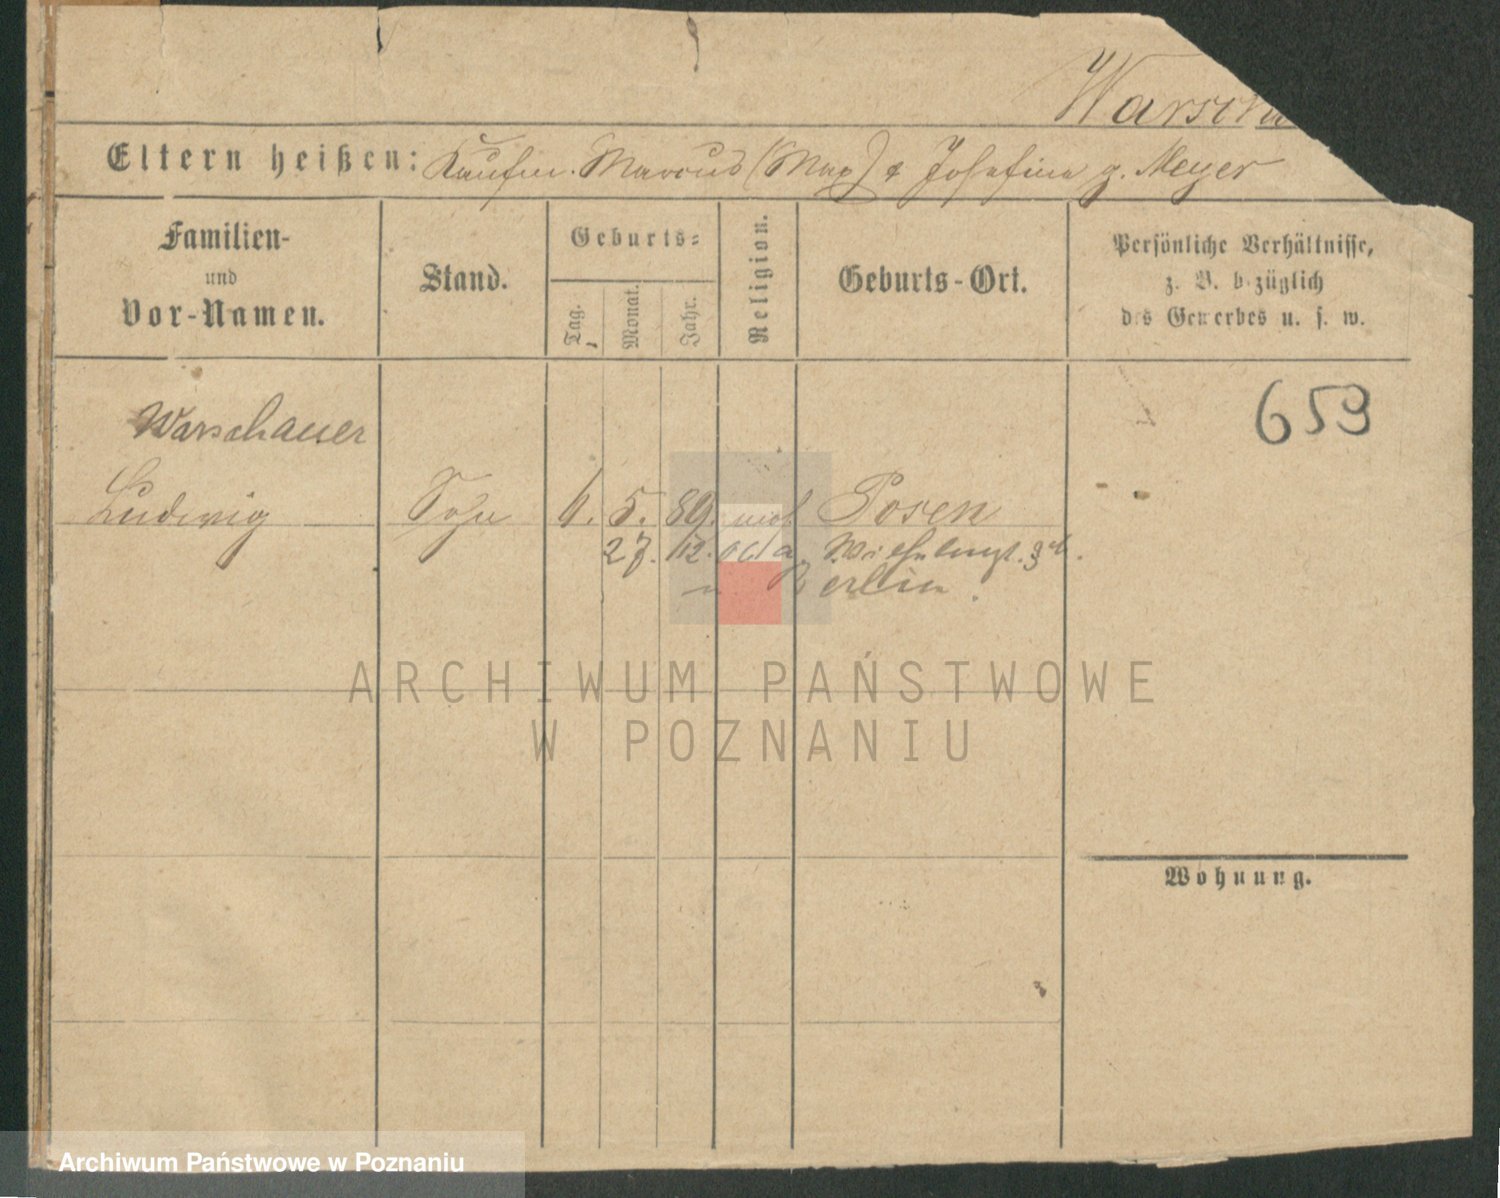 Warscha
Eltern heißen: Kaufm. Marcus (Max) & Josefine g. Meyer
Familien-
und
Vor-Namen.
Stand.
Geburts-
Tag.
Monat.
Jahr.
Religion.
Geburts-Ort.
Persönliche Verhältnisse,
z. B. bezüglich
des Gewerbes u. s. w.
653
Warschauer
Ludwig Sohn 1. 5. 89. mos Posen
27. 12.
Berlin.
ARCHIWUM PAŃSTWOWE
W POZNANIU
Wohnung.
Archiwum Państwowe w Poznaniu